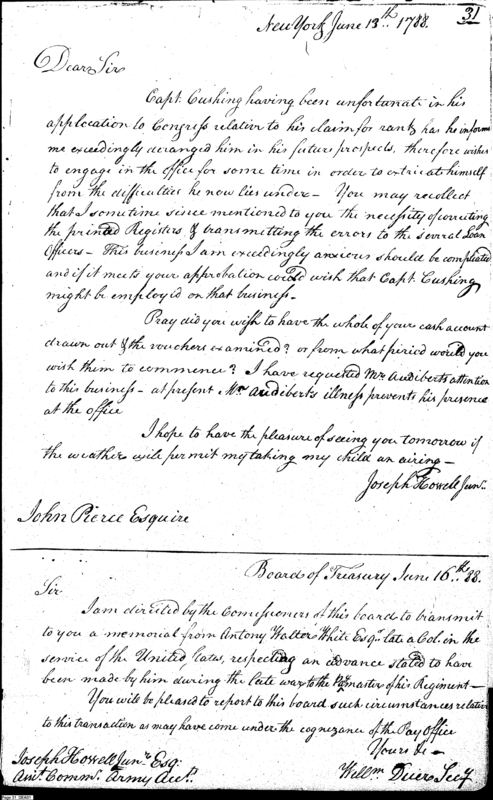 New York June 13th. 1788.
31
Dear Sir
Capt. Cushing having been unfortunate in his
applocation to Congress relative to his claim for rank, has he informs
me exceedingly deranged him in his future prospects, therefore wishes
to engage in the office for some time in order to extricate himself
from the difficulties he now lies under — You may recollect
that I sometime since mentioned to you the necessity of correcting
the printed Registers & transmitting the errors to the several Loan
Officers — This business I am exceedingly anxious should be compleated
and if it meets your approbation could wish that Capt. Cushing
might be employed on that business —
Pray did you wish to have the whole of your cash account
drawn out & the vouchers examined? or from what period would you
wish them to commence? I have requested Mr. Audiberts attention
to this business — at present Mr. Audibert's illness prevents his presence
at the office
I hope to have the pleasure of seeing you tomorrow if
the weather will permit my taking my child an airing —
Joseph Howell Junr.
John Pierce Esquire
Board of Treasury June 16th. 88.
Sir
I am directed by the Comissioners of this board to transmit
to you a memorial from Antony Walter White Esqr. late a Col. in the
service of the United States, respecting an advance stated to have
been made by him during the late war to the Pay master of his Regiment —
You will be pleased to report to this board such circumstances relative
to this transaction as may have come under the cognezance of the Pay Office
Yours &c —
Joseph Howell Junr. Esq:
Willm Duer Secy
Army Acts.